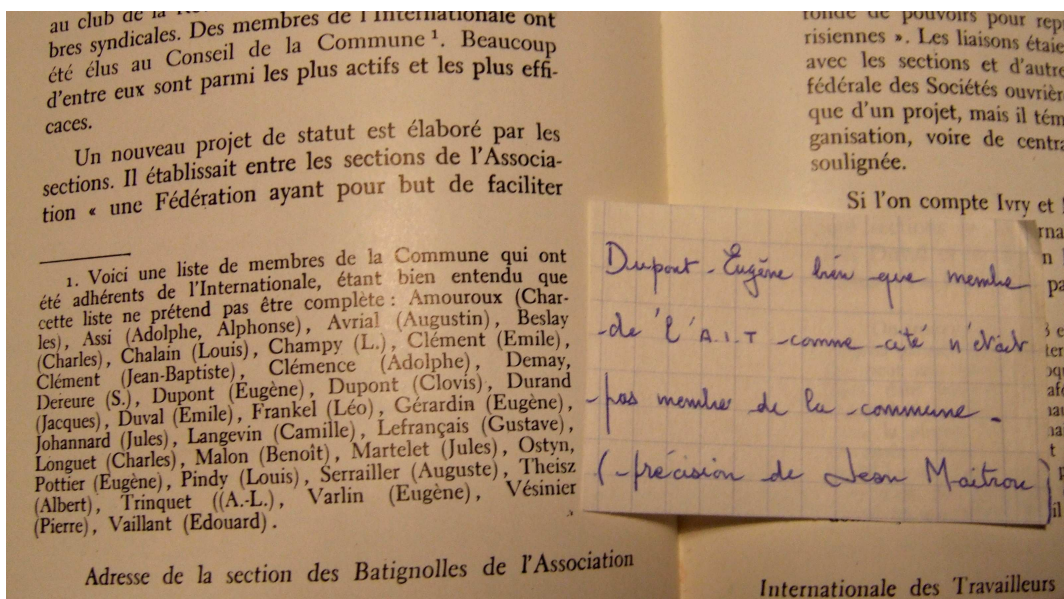 au club de la
bres syndicales. Des membres de l'Internationale ont
été élus au Conseil de la Commune 1. Beaucoup
d'entre eux sont parmi les plus actifs et les plus effi-
caces.
Un nouveau projet de statut est élaboré par les
sections. Il établissait entre les sections de l'Associa-
tion « une Fédération ayant pour but de faciliter
1. Voici une liste de membres de la Commune qui ont
été adhérents de l'Internationale, étant bien entendu que
cette liste ne prétend pas être complète : Amouroux (Char-
les), Assi (Adolphe, Alphonse), Avrial (Augustin), Beslay
(Charles), Chalain (Louis), Champy (L.), Clément (Emile),
Clément (Jean-Baptiste), Clémence (Adolphe), Demay,
Dereure (S.), Dupont (Eugène), Dupont (Clovis), Durand
(Jacques), Duval (Emile), Frankel (Léo), Gérardin (Eugène),
Johannard (Jules), Langevin (Camille), Lefrançais (Gustave),
Longuet (Charles), Malon (Benoît), Martelet (Jules), Ostyn,
Pottier (Eugène), Pindy (Louis), Serrailler (Auguste), Theisz
(Albert), Trinquet ((A.-L.), Varlin (Eugène), Vésinier
(Pierre), Vaillant (Edouard).
Adresse de la section des Batignolles de l'Association
de pouvoirs pour
risiennes ». Les liaisons
avec les sections et
fédérale des Sociétés
que d'un projet, mais il
ganisation, voire de
soulignée.
Si l'on compte Ivry et
Dupont Eugène bien que membre
de l'A.I.T comme cité n'était
pas membre de la commune.
(précision de Jean Maitron)
Internationale des Travailleurs